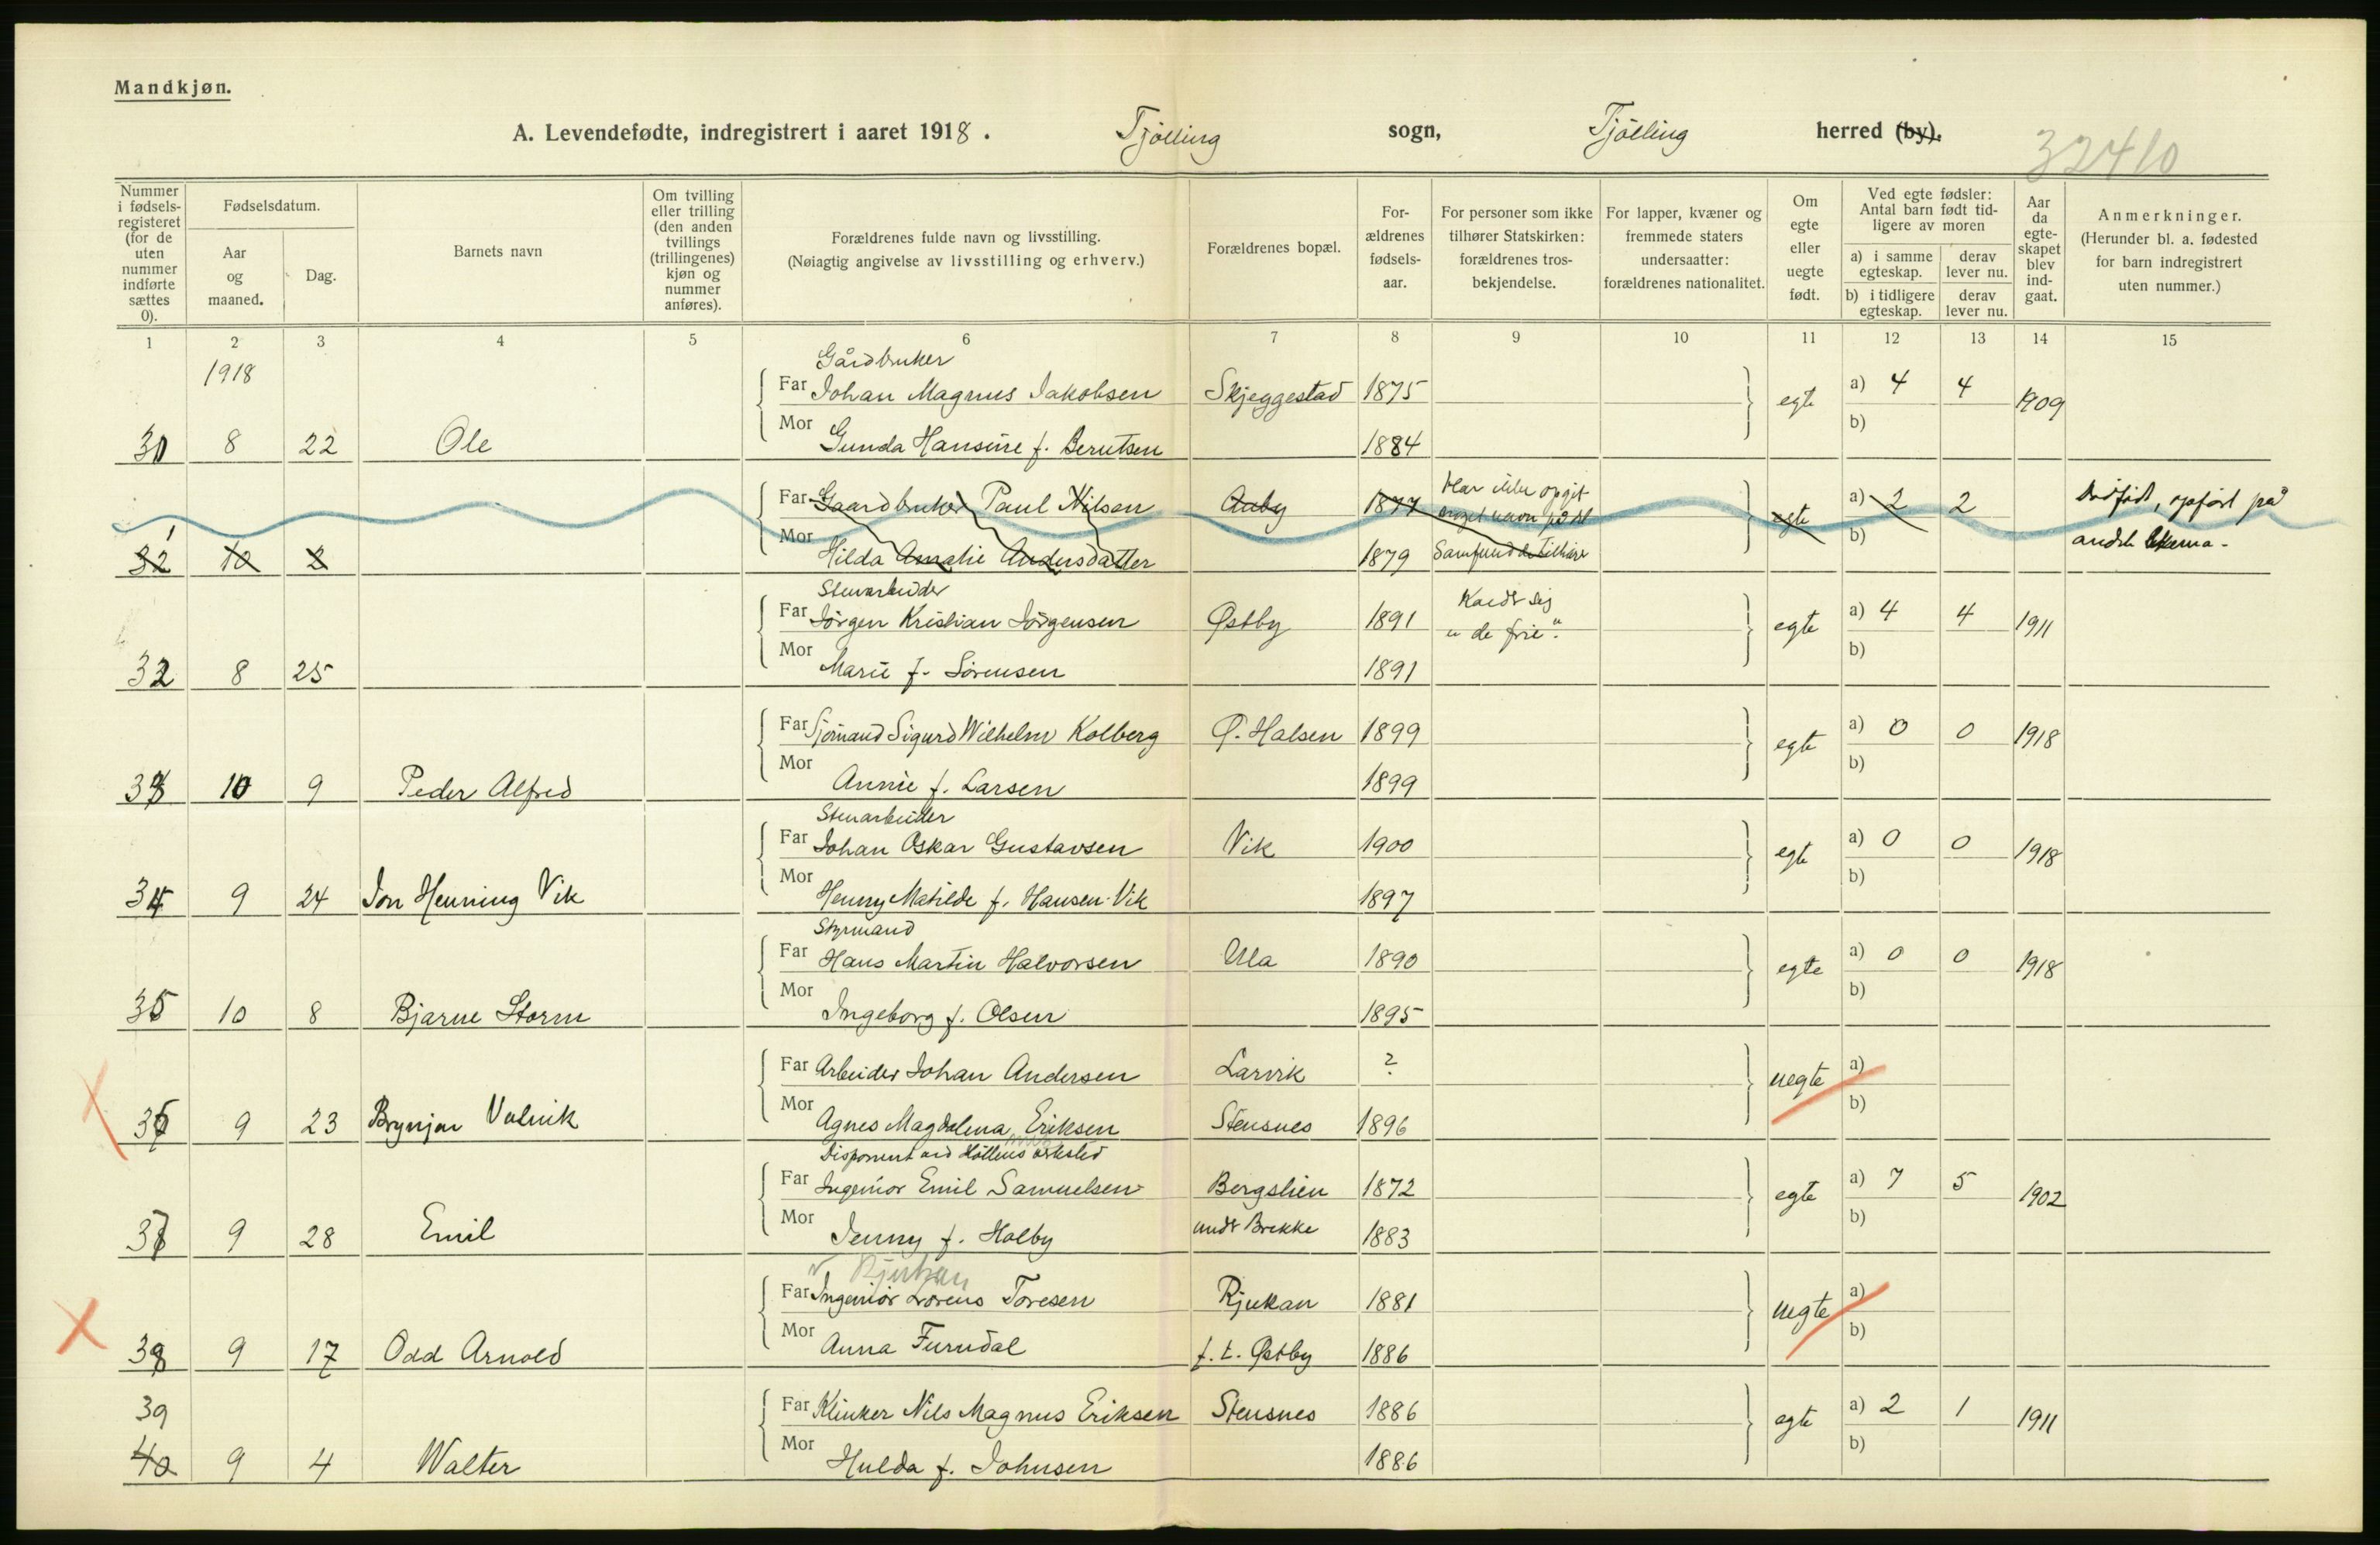 Mandkjøn.
A. Levendefødte, indregistrert i aaret 1918. Tjölling sogn, Tjölling herred (by).
32410
Nummer i fødsels-registeret (for de uten nummer indførte sættes 0).
Fødselsdatum.
Aar og maaned.
Dag.
Barnets navn
Om tvilling eller trilling (den anden tvillings (trillingenes) kjøn og nummer anføres).
Forældrenes fulde navn og livsstilling.
(Nøiagtig angivelse av livsstilling og erhverv.)
Forældrenes bopæl.
For-ældrenes fødsels-aar.
For personer som ikke tilhører Statskirken: forældrenes tros-bekjendelse.
For lapper, kvæner og fremmede staters undersaatter: forældrenes nationalitet.
Om egte eller uegte født.
Ved egte fødsler: Antal barn født tid-ligere av moren
a) i samme egteskap.
derav lever nu.
b) i tidligere egteskap.
derav lever nu.
Aar da egte-skapet blev ind-gaat.
Anmerkninger.
(Herunder bl. a. fødested for barn indregistrert uten nummer.)
1 2 3 4 5 6 7 8 9 10 11 12 13 14 15
1918
Gårdbruker
Far Johan Magnus Jakobsen Skjeggestad 1875 egte a) 4 4 1909
b)
31 8 22 Ole Mor Gunda Hansine f. Berntsen 1884
Far Gaardbruker Paul Nilsen Auby 1877 Har ikke opgit noget navn på det egte a) 2 2 Dødfødt, opført på
32 10 3 Mor Hilda Amalie Andersdatter 1879 Samfund de tilhører b) andet skema.
Stenarbeider
Far Jörgen Kristian Jörgensen Østby 1891 Kaldr sig "de frie". egte a) 4 4 1911
b)
32 8 25 Mor Marie f. Sörensen 1891
Far Sjömand Sigurd Wilhelm Kolberg Ø. Halsen 1899 egte a) 0 0 1918
b)
33 10 9 Peder Alfred Mor Annie f. Larsen 1899
Stenarbeider
Far Johan Oskar Gustavsen Vik 1900 egte a) 0 0 1918
b)
34 9 24 Jon Henning Vik Mor Henny Matilde f. Hansen-Vik 1897
Styrmand
Far Hans Martin Halvorsen Ula 1890 egte a) 0 0 1918
b)
35 10 8 Bjarne Storm Mor Ingeborg f. Olsen 1895
Far Arbeider Johan Andersen Larvik ? uegte a)
b)
36 9 23 Brynjar Mor Agnes Magdalena Eriksen Stensnes 1896
Disponent ved
Far Ingeniör Emil Samuelsen Bergslien 1872 egte a) 7 5 1902
b)
37 9 28 Emil Mor Jenny f. Holby undr Brekke 1883
Rjukan
Far Ingeniör Lorens Toresen Rjukan 1881 uegte a)
b)
38 9 17 Odd Arnold Mor Anna Furudal f. t. Østby 1886
39
Far Klinker Nils Magnus Eriksen Stensnes 1886 egte a) 2 1 1911
b)
40 9 4 Walter Mor Hulda f. Johnsen 1886